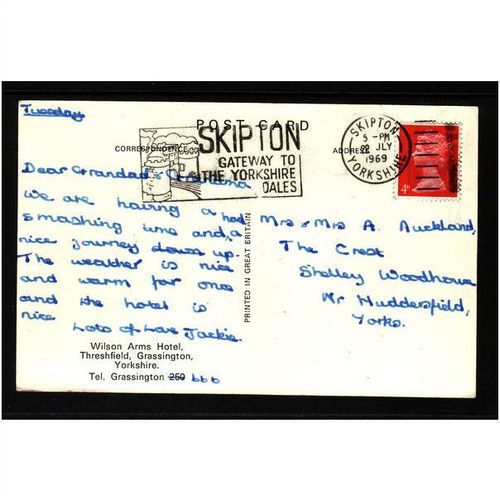 Tuesday
POST CARD
CORRESPONDENCE
ADDRESS
SKIPTON
GATEWAY TO
THE YORKSHIRE
DALES
SKIPTON
5 - PM
22 JLY
1969
YORKSHIRE
4D
Dear Grandad & Grandma
We are having a
smashing time and had a
nice journey down up.
The weather is nice
and warm for once
and the hotel is
nice
Lots of Love Jackie.
PRINTED IN GREAT BRITAIN
Mrs & Mrs A. Auckland,
The Crest
Shelley Woodhouse
Nr Huddersfield,
Yorks.
Wilson Arms Hotel,
Threshfield, Grassington,
Yorkshire.
Tel. Grassington 250 666